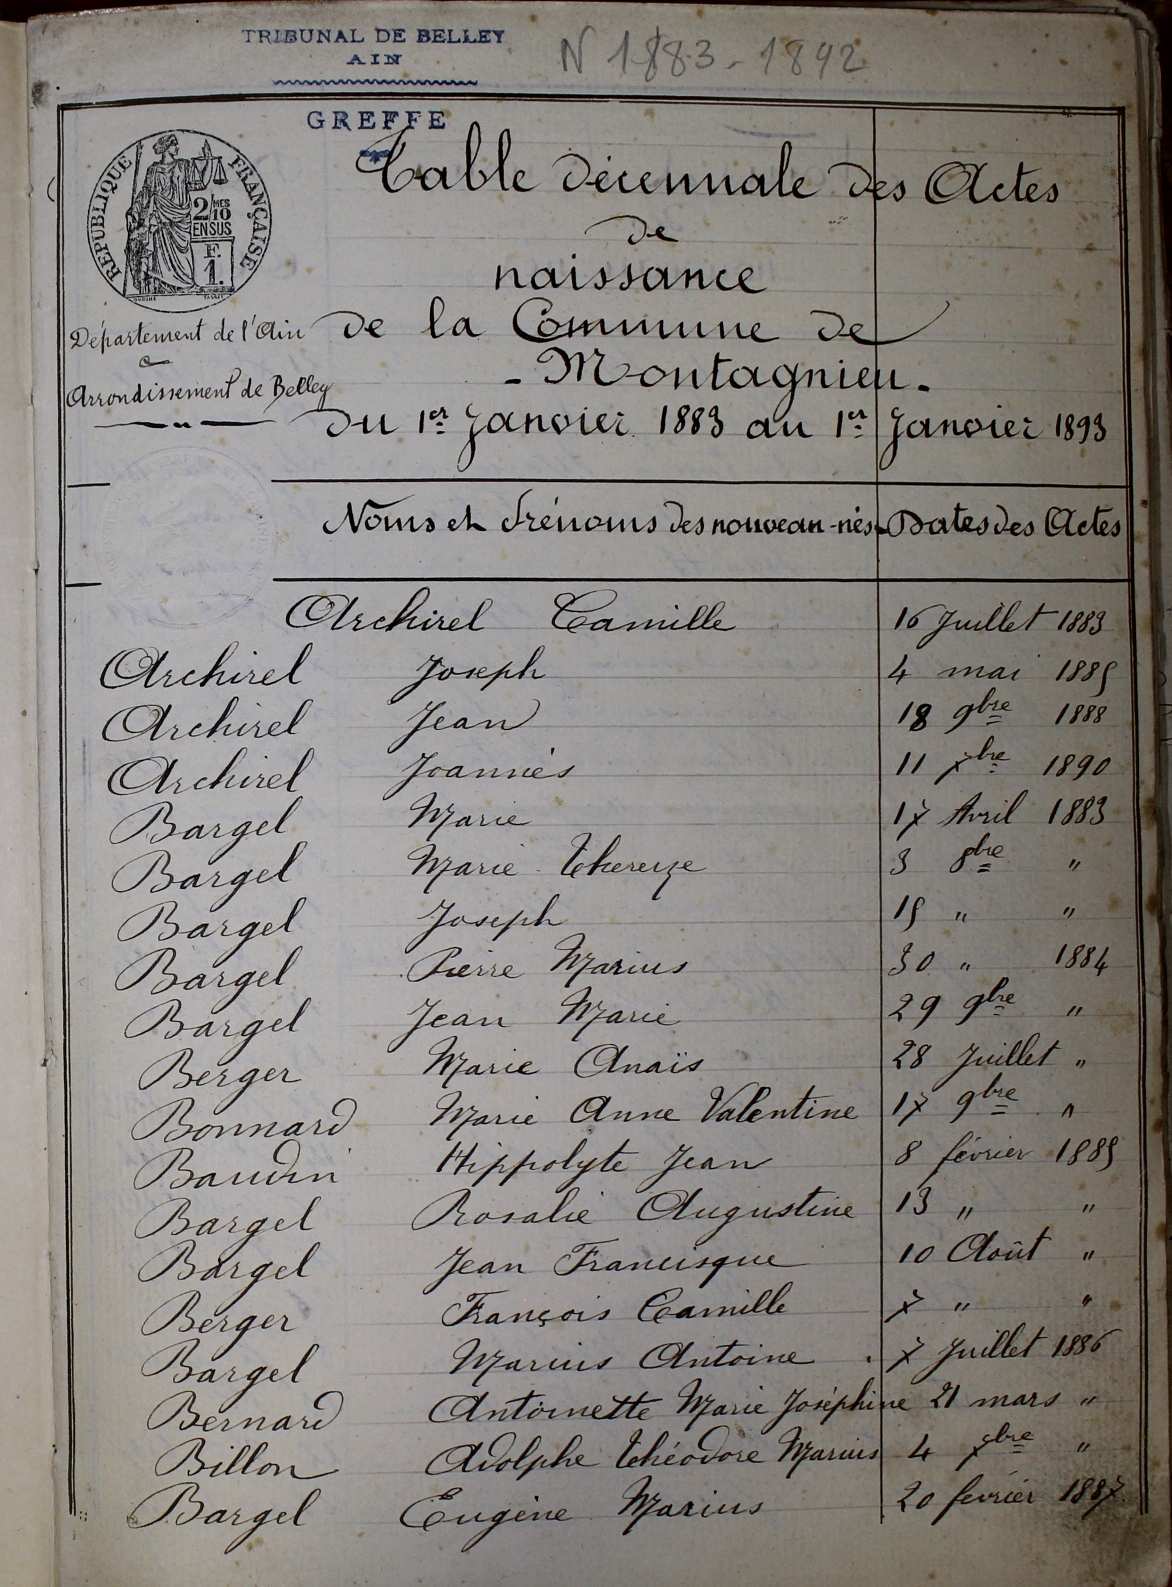 TRIBUNAL DE BELLEY
AIN
N 1883-1892
GREFFE
RÉPUBLIQUE FRANÇAISE
2/MES
10
EN SUS
F.
1.
Table décennale des Actes
de
naissance
Département de l'Ain
de la Commune de
Arrondissement de Belley
- Montagnieu -
du 1er Janvier 1883 au 1er Janvier 1893
Noms et Prénoms des nouveau-nés - Dates des Actes
Archirel Camille 16 Juillet 1883
Archirel Joseph 4 mai 1885
Archirel Jean 18 9bre 1888
Archirel Joannès 11 7bre 1890
Bargel Marie 17 Avril 1883
Bargel Marie Thereize 3 8bre "
Bargel Joseph 15 " "
Bargel Pierre Marius 30 " 1884
Bargel Jean Marie 29 9bre "
Berger Marie Anaïs 28 Juillet "
Bonnard Marie Anne Valentine 17 9bre "
Baudin Hippolyte Jean 8 février 1885
Bargel Rosalie Augustine 13 " "
Bargel Jean Francisque 10 Août "
Berger François Camille 7 " "
Bargel Marius Antoine 7 Juillet 1886
Bernard Antoinette Marie Joséphine 21 mars "
Billon Adolphe Théodore Marius 4 7bre "
Bargel Eugène Marius 20 février 1887